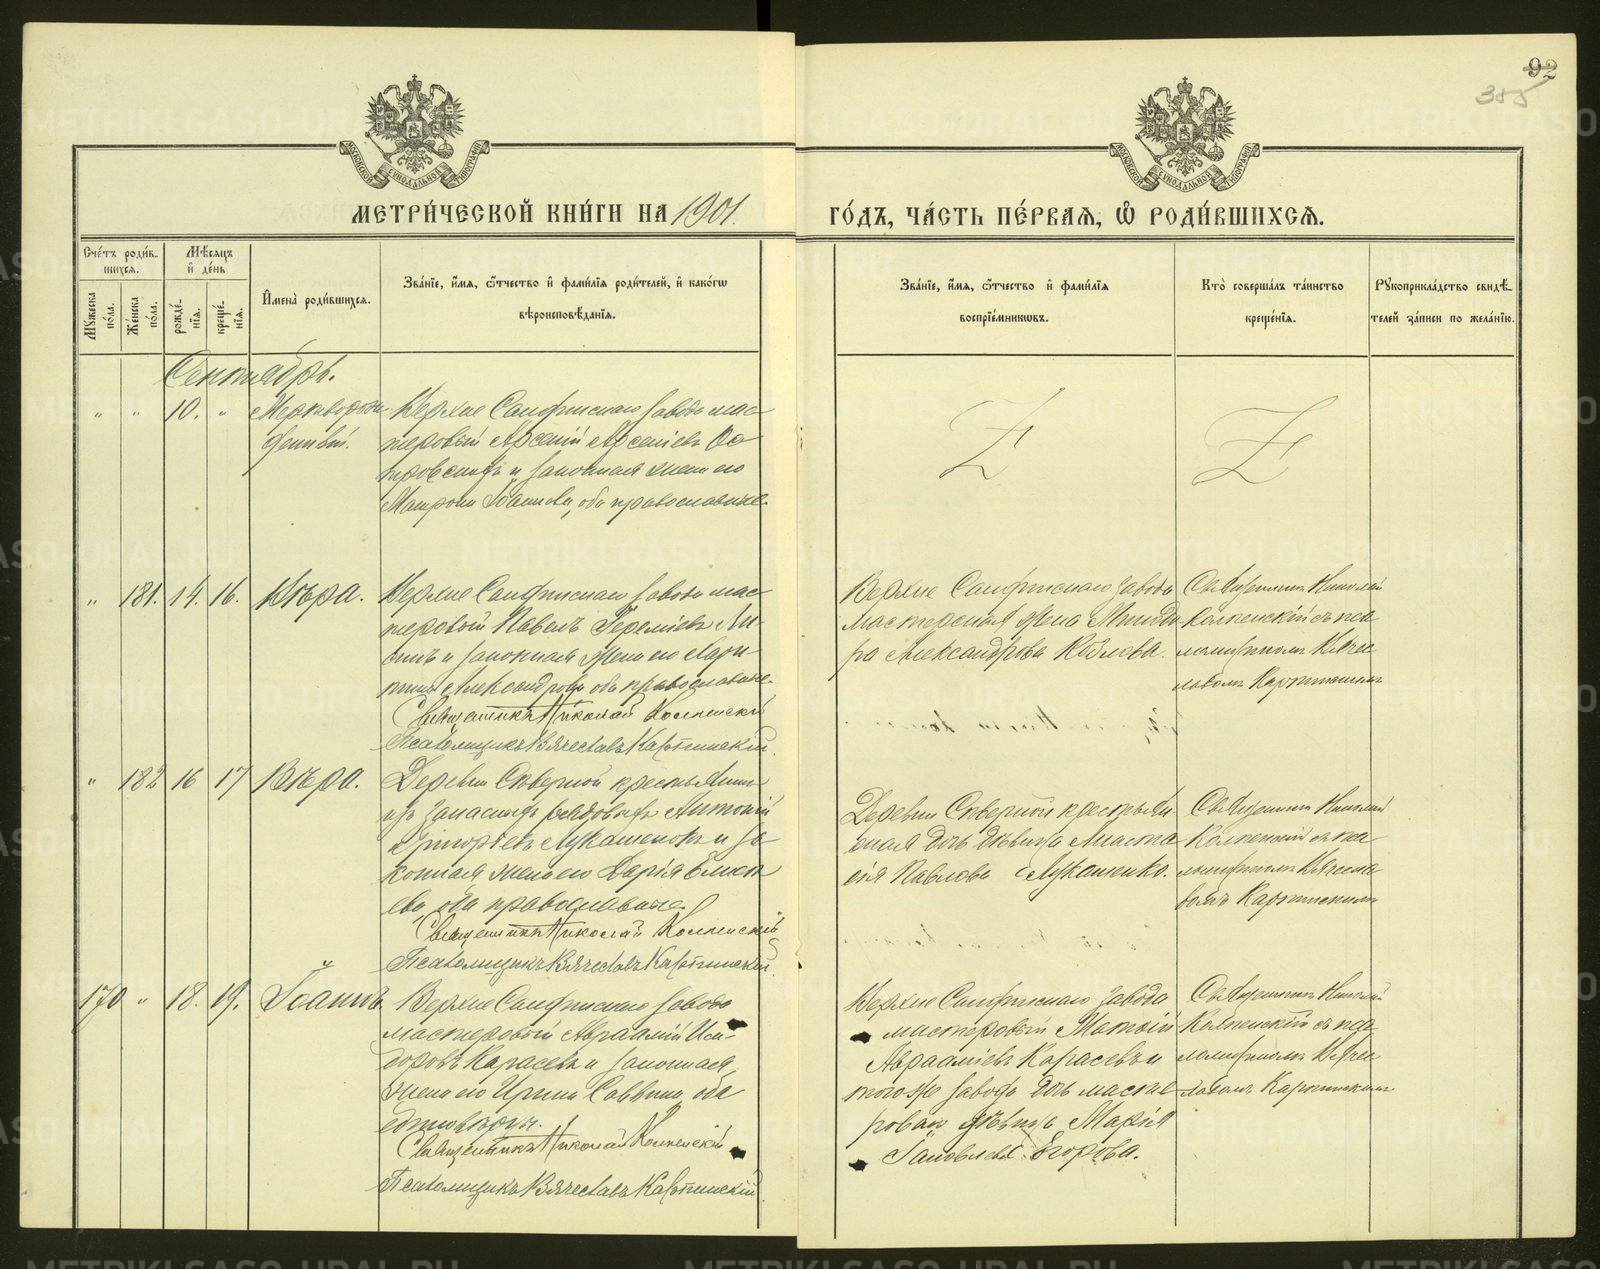 92
355
МОСКОВСКОЙ СУНОДАЛЬНОЙ ТИПОГРАФІИ
МОСКОВСКОЙ СУНОДАЛЬНОЙ ТИПОГРАФІИ
МЕТРИ́ЧЕСКОЙ КНИ́ГИ НА 1901.
ГО́ДЪ, ЧА́СТЬ ПЕ́РВАЯ, Ѽ РОДИ́ВШИХСЯ.
Сче́тъ роди́в-
шихся.
Му́жеска по́ла.
Же́нска по́ла.
Мѣ́сяцъ и҆ де́нь
рожде́-нїя.
креще́-нїя.
И҆мена̀ роди́вшихся.
Зва́нїе, и҆́мя, ѻ҆́тчество и҆ фами́лїя роди́телей, и҆ како́гѡ
вѣроисповѣ́данїя.
Зва́нїе, и҆́мя, ѻ҆́тчество и҆ фами́лїя
воспрїе́мникѡвъ.
Кто̀ соверша́лъ та́инство
креще́нїя.
Рꙋкоприкла́дство свидѣ́-
телей за́писи по жела́нїю.
Сентябрь.
" " 10. "
Верхне Саифтскаго завода мас-
теровый Арсеній Арсеніевъ
и законная жена его
оба православные.
" 181. 14. 16. Вѣра.
Верхне Саифтскаго завода мас-
теровый Павелъ Іереміевъ
и законная жена его
Александрова оба православные.
Священникъ Николай Колпенскій
Псаломщикъ Вячеславъ Карпинскій.
Верхне Саифтскаго завода
мастерская жена
Александрова
Священникъ Николай
Колпенскій съ пса
ломщикомъ Вячес
лавомъ Карпинскимъ
" 182 16 17 Вѣра.
Деревни Северной крестьянинъ
изъ запасныхъ рядовыхъ Антоній
Григорьевъ Лукашенокъ и за
конная жена его Дарія
ева, оба православные.
Священникъ Николай Колпенскій
Псаломщикъ Вячеславъ Карпинскій.
Деревни Северной крестьян
ская дочь дѣвица Анаста
сія Павлова Лукашенко.
Священникъ Николай
Колпенскій съ пса
ломщикомъ Вячесла
вомъ Карпинскимъ
170 " 18. 19. Іоаннъ.
Верхне Саифтскаго завода
мастеровый Авраамій Иси-
доровъ Карасевъ и законная
жена его Ирина Саввина, оба
единовѣрцы.
Священникъ Николай Колпенскій
Псаломщикъ Вячеславъ Карпинскій.
Верхне Саифтскаго завода
мастеровый Матвій
Авраамiевъ Карасевъ и
того же завода дочь масте
роваго дѣвица Марія
Егорова.
Священникъ Николай
Колпенскій съ пса
ломщикомъ Вячес
лавомъ Карпинскимъ
METRIKI.GASO-URAL.RU